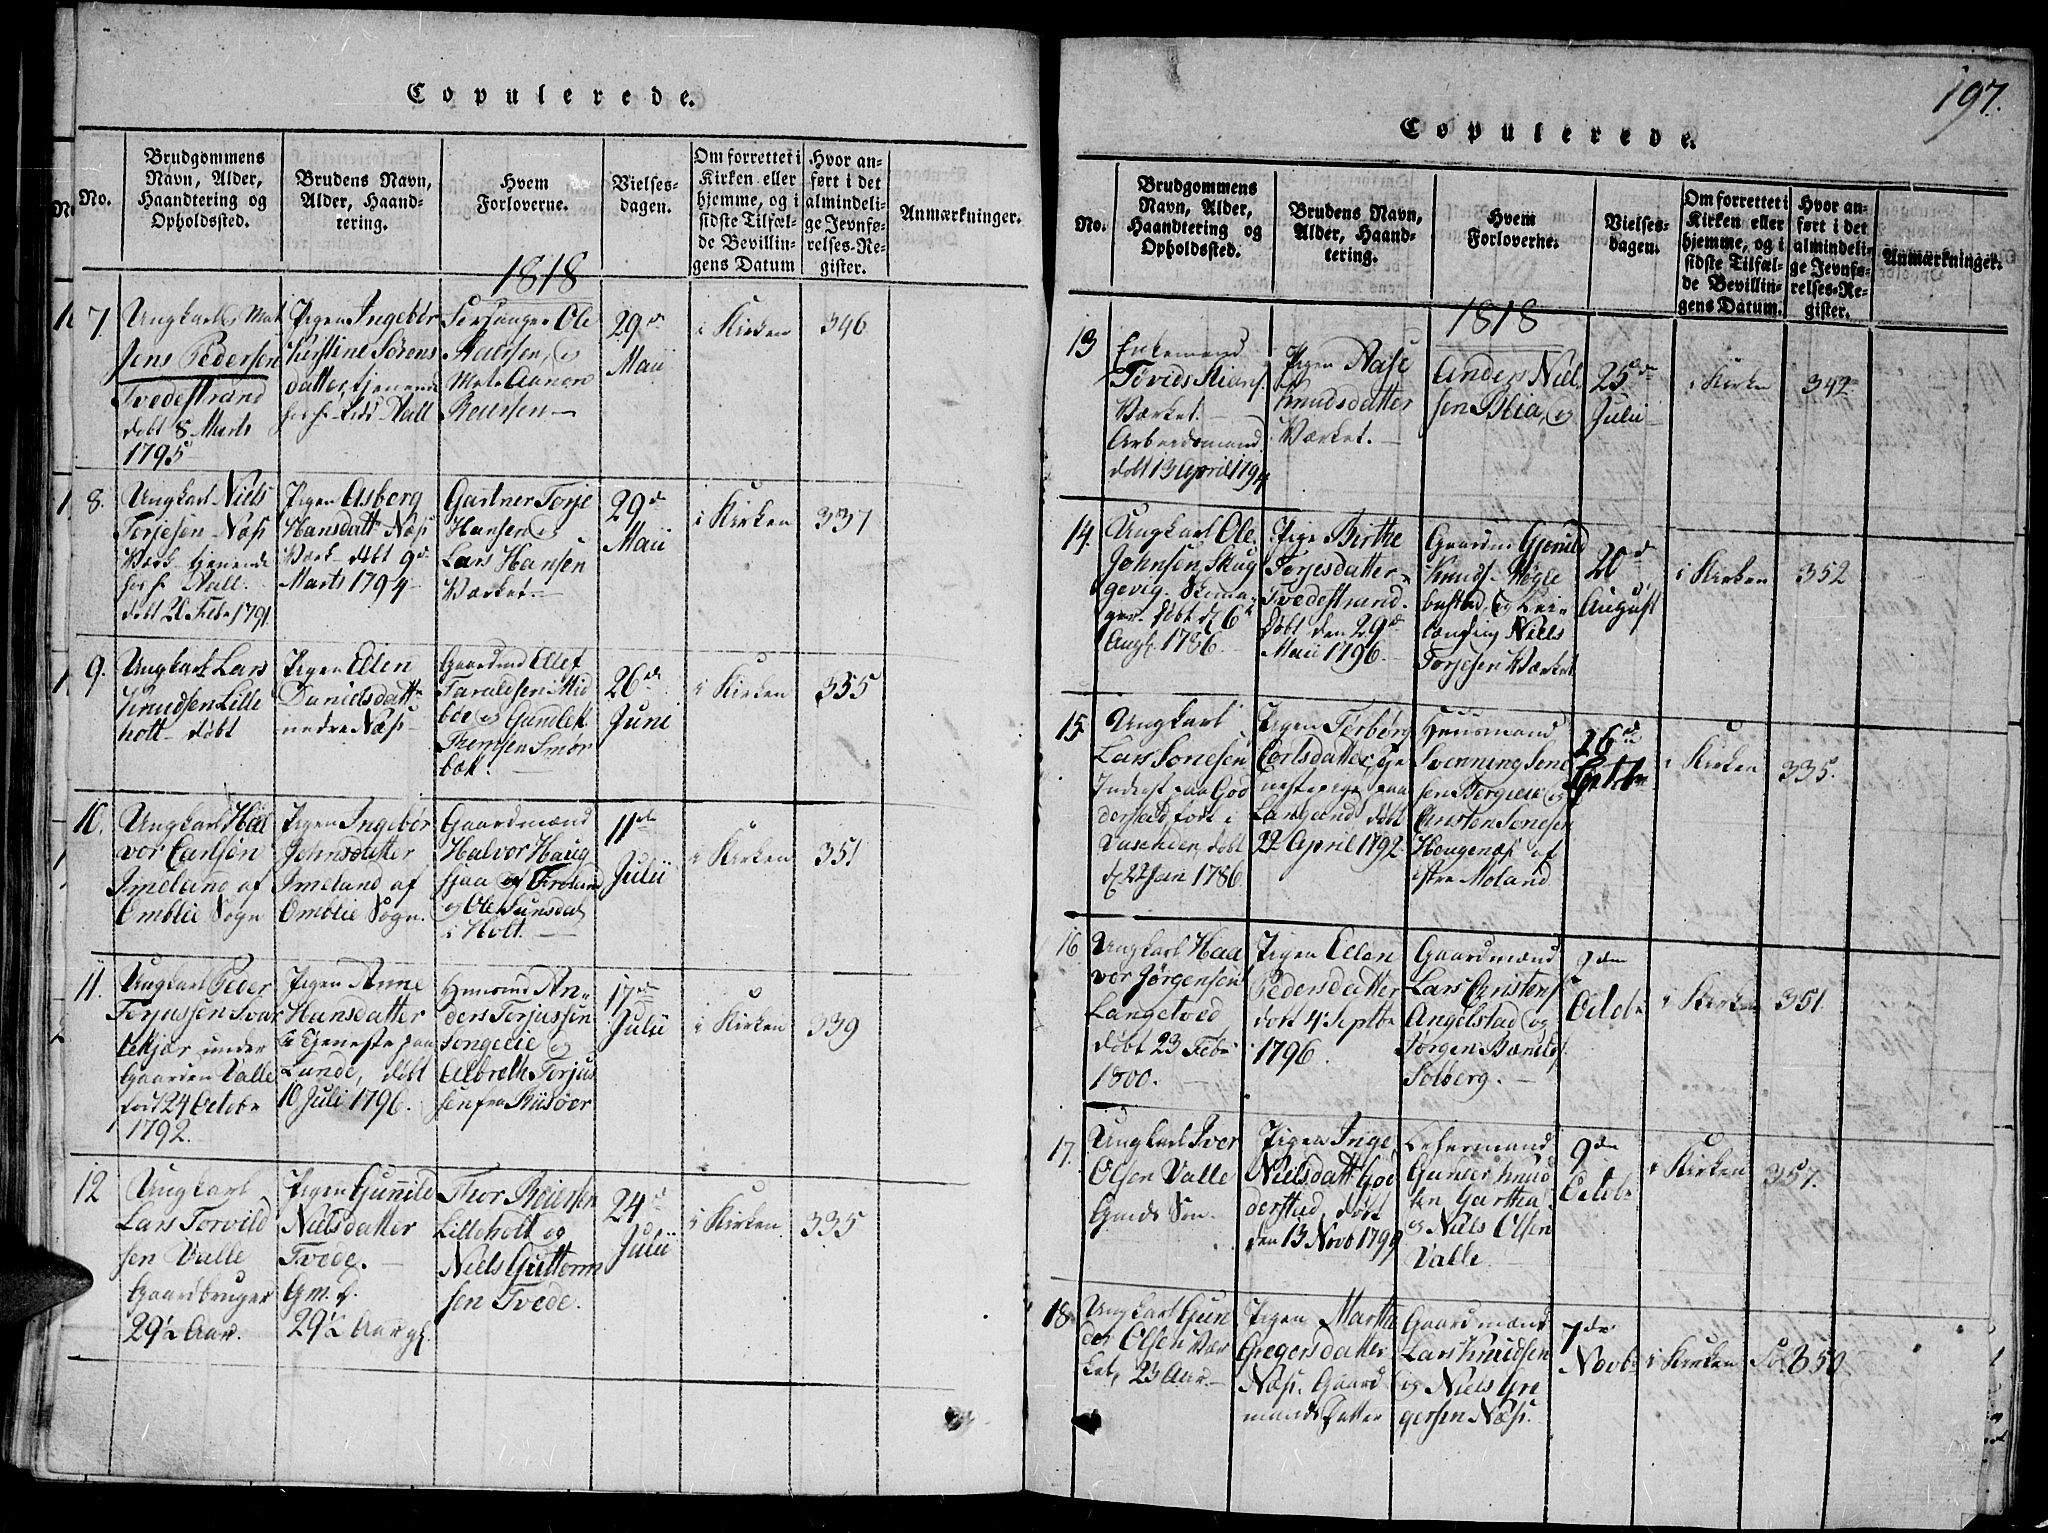 Copulerede.
No.
Brudgommens
Navn, Alder,
Haandtering og
Opholdssted.
Brudens Navn,
Alder, Haand-
tering.
Hvem
Forloverne.
Vielses-
dagen.
Om forrettet i
Kirken eller
hjemme, og i
sidste Tilfæl-
de Bevillin-
gens Datum
Hvor an-
ført i det
almindeli-
ge Jevnfø-
relses-Re-
gister.
Anmærkninger.
1818
7.
Ungkarl, Mat
Jens Pedersen
Tvedestrand
døbt 8 Marts
1795
Pigen Ingebor
Kirstine Sørens
datter, tjenende
hos Aall
Ole
Mats Aanon
29de
Maii
i Kirken
346
8.
Ungkarl Niels
Torjesen Næss
Værk tjenende
hos Aall.
døbt 21 Febr 1791
Pigen Asberg
Hansdatt Næss
Værk døbt 9de
Marts 1794
Gartner Torje
Hansen og
Lars Hansen
Værket.
29de
Maii
i Kirken
337
9.
Ungkarl Lars
Knudsen Lille
holt døbt
Pigen Ellen
Danielsdatt
nedre Næss
Gaardmd Ellef
Taraldsen Mid
boe og Gundlek
Thomsen Smør
bæk.
26de
Juni
i Kirken
355
10.
Ungkarl Hal
vor Carlsen
Imeland af
Omblie Sogn
Pigen Ingebor
Johnsdatter
Imeland af
Omblie Sogn.
Gaardmænd
Halvor Haug
sjaa af Froland
og Ole Sunsdal
i Holt.
11te
Julii
i Kirken
351
11.
Ungkarl Peder
Torjussen Svar
tekjær under
Gaarden Valle
født 24 Octobr
1792.
Pigen Anne
Hansdatter
i Tjeneste paa
Lunde, døbt
10 Juli 1796.
Huusmd An-
ders Torjussen
Songeeie og
Albreth Torjus
sen fra Riisøer
17de
Julii
i Kirken
339
12
Ungkarl
Lars Torvild
sen Valle
Gaardbruger
29½ Aar.
Pigen Gunnild
Nielsdatter
Tvede.
Gm. d.
29½ Aar gl.
Thor Reiersen
Lilleholt og
Niels Guttorm
sen Tvede.
24de
Julii
i Kirken
335
197.
Copulerede.
No.
Brudgommens
Navn, Alder,
Haandtering og
Opholdssted.
Brudens Navn,
Alder, Haand-
tering.
Hvem
Forloverne.
Vielses-
dagen.
Om forrettet i
Kirken eller
hjemme, og i
sidste Tilfæl-
de Bevillin-
gens Datum.
Hvor an-
ført i det
almindeli-
ge Jevnfø-
relses-Re-
gister.
Anmærkninger.
1818
13
Enkemand
Værket.
Arbeidsmand
døbt 13 April 1794
Pigen Aase
Knudsdatter
Værket.
Anders Niel
sen Blia, og
25de
Julii
i Kirken
342
14.
Ungkarl Ole
Johnsen Skug
gevig. Skoma
ger døbt d 6te
Augs. 1786.
Pige Birthe
Torjesdatter
Tvedestrand.
døbt den 29de
Maii 1796.
Gaardm Gjeruld
Knuds. Møgle
bustad, og
Niels
Torjesen Værket
20de
August
i Kirken
352
15.
Ungkarl
Lars Sonesen
Inderst paa God
derstad født i
døbt
d 22 Jan 1786.
Pigen Torborg
Carlsdatter, tje
nestepige paa
Langand døbt
22 April 1792
Huusmand
Svenning Sone
sen Bergeie og
Christen Sonesen
Hougenæs af
østre Moland
26de
Septbr
i Kirken
335.
16
Ungkarl Haa
vor Jørgensen
Langetved
døbt 23 Febr
1800.
Pigen Ellen
Pedersdatter
døbt 4 Septbr
1796.
Gaardmænd
Lars Christens
Angelstad og
Jørgen Bændts
Solberg.
9den
Octobr
i Kirken
351.
17.
Ungkarl Iver
Olsen Valle
Gmds Søn.
Pigen Inge
Nielsdatt God
derstad, døbt
den 13 Novb 1799
Lehnsmand
Gunder Knud
sen Gartha.
og Niels Olsen
Valle.
9den
Octobr
i Kirken
357.
18.
Ungkarl Gun
der Olsen Vær
ket, 23 Aar.
Pigen Martha
Gregersdatter
Næss. Gaard
mands Datter
Gaardmænd
Lars Knudsen
og Niels Gre
gersen Næss.
7de
Novbr
i Kirken
350